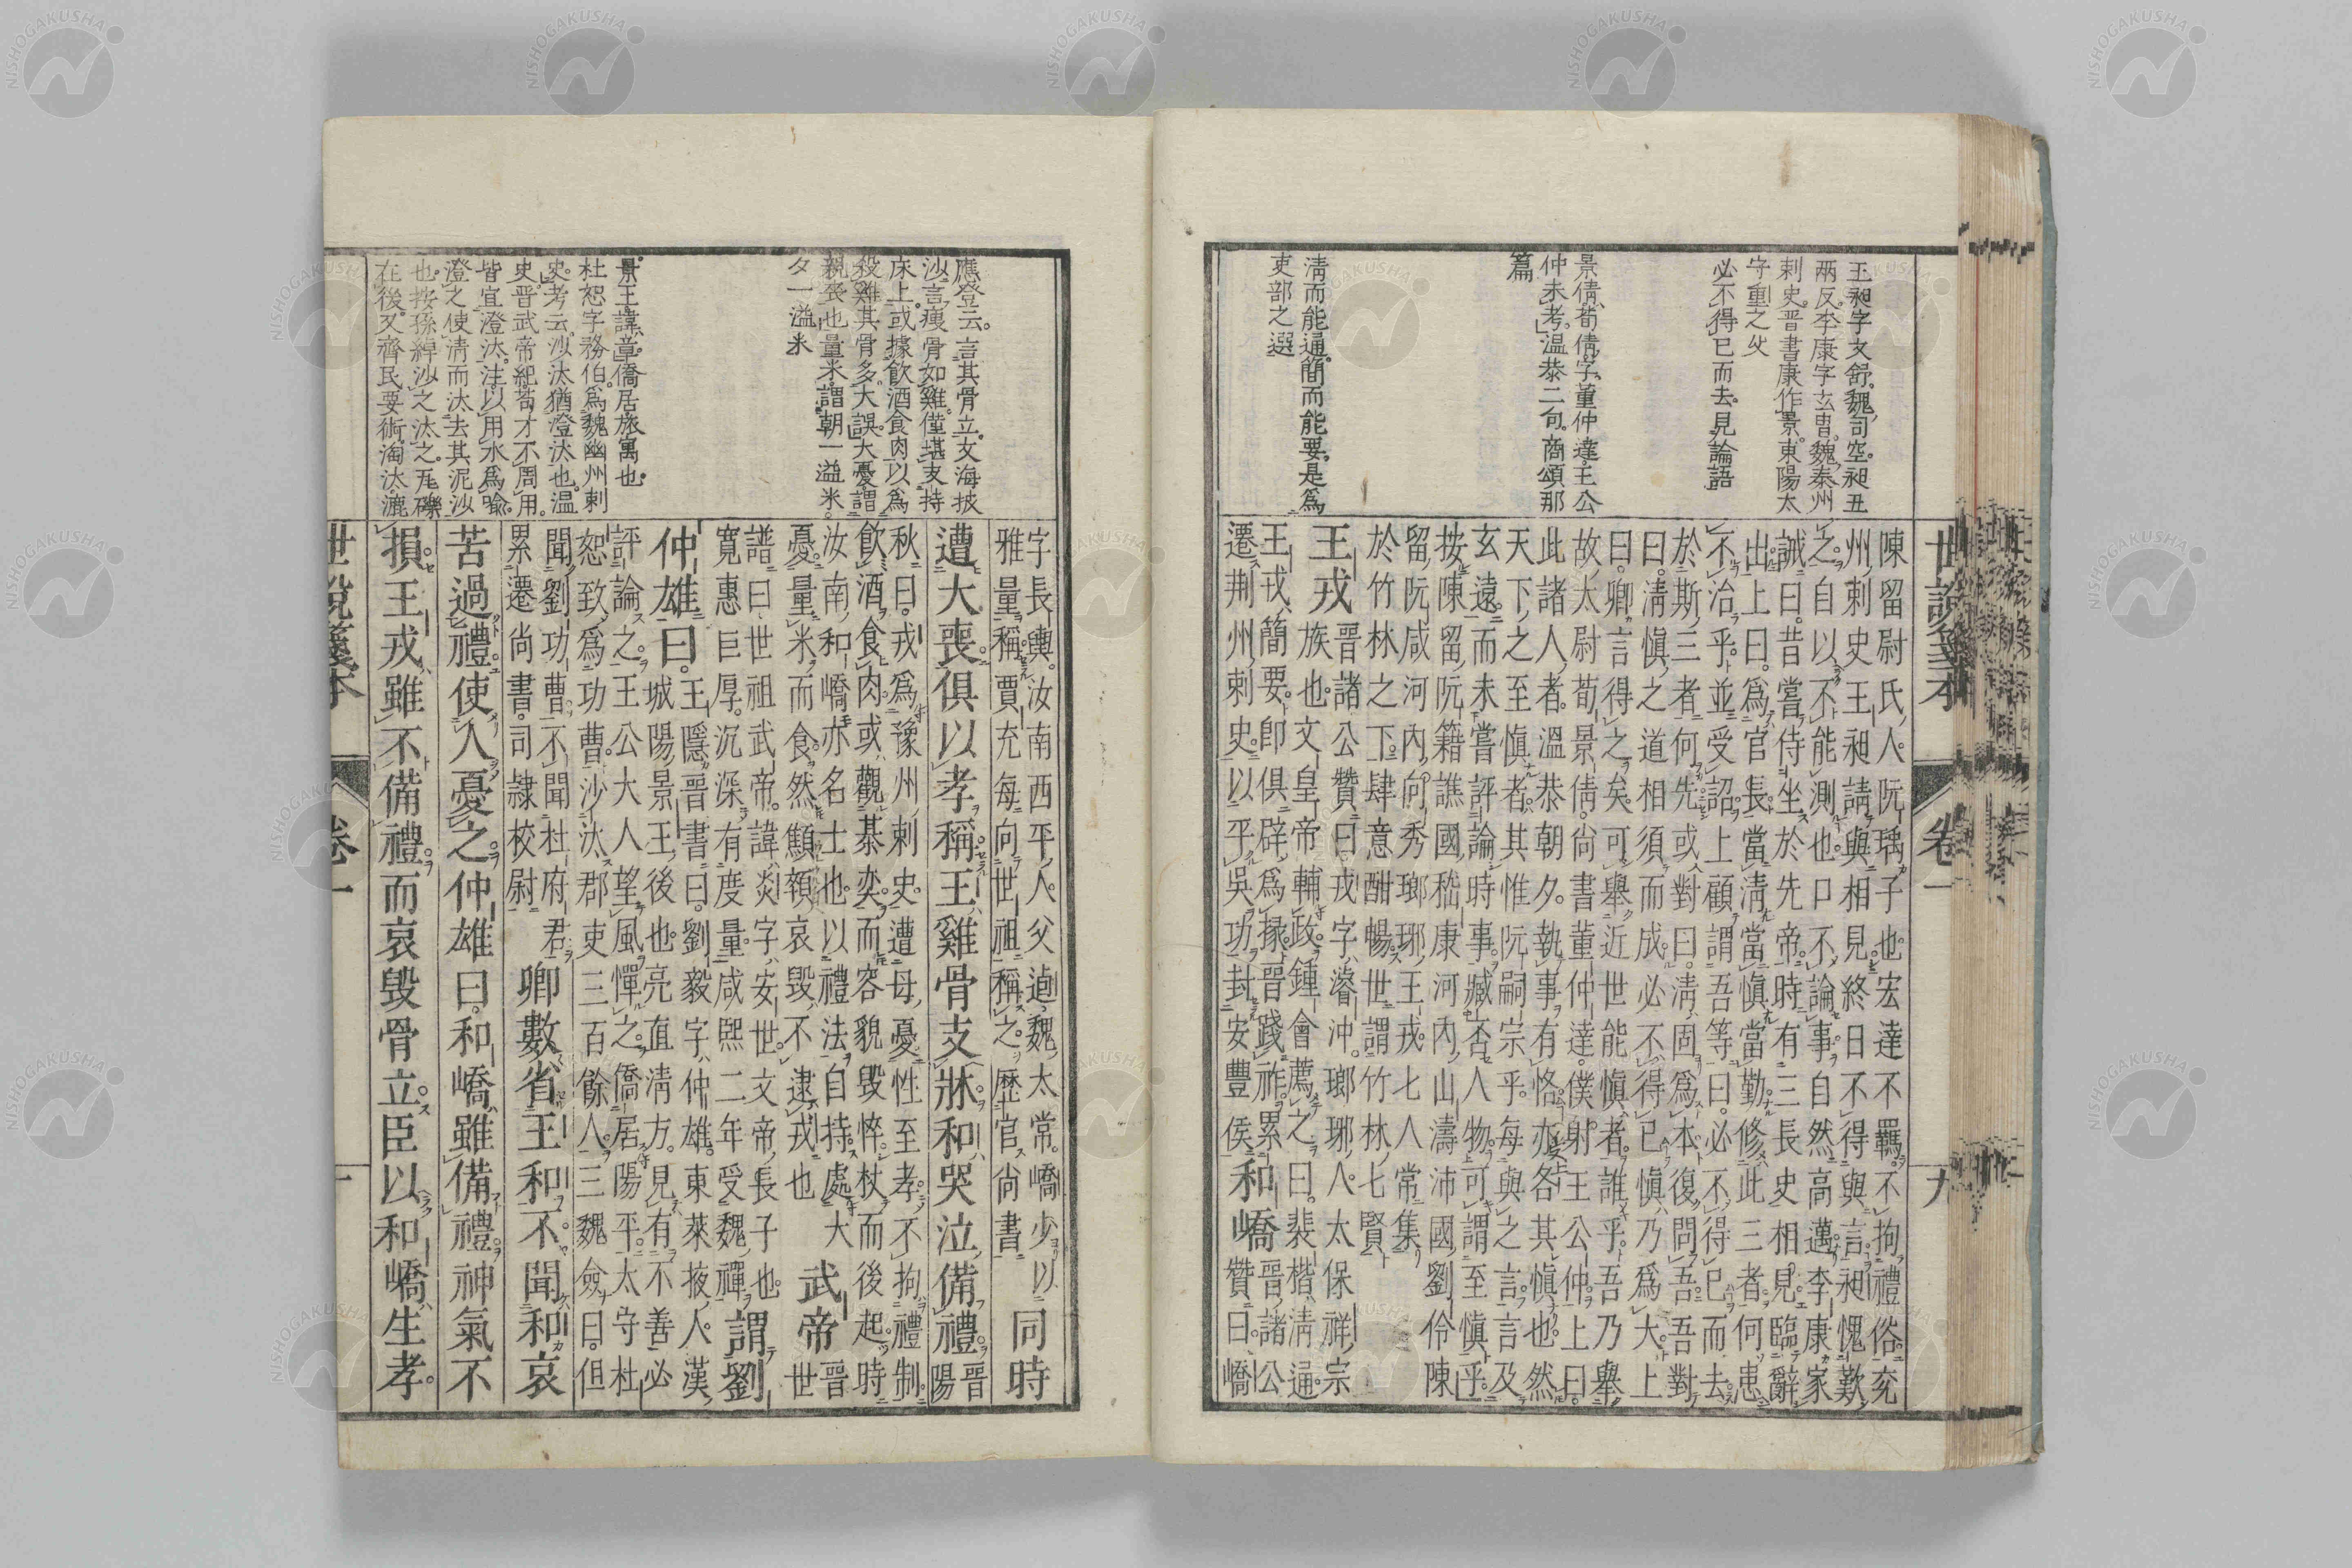 世說箋本 卷一 九
王昶字文舒。魏司空。昶丑
兩反。李康字玄冑。魏秦州
刺史。晉書康作景。東陽太
守重之父
必不得已而去。見論語
景倩、荀倩字、董仲達、王公
仲未考。温恭二句。商頌那
篇
淸而能通。簡而能要。是爲
吏部之選
陳留尉氏人阮瑀子也宏達不羈不拘禮俗兗
州刺史王昶請與相見終日不得與言昶愧歎
之自以不能測也口不論事自然高邁李康家
誡曰昔嘗侍坐於先帝時有三長史相見臨辭
出上曰爲官長當淸當愼當勤修此三者何患
不治乎並受詔上顧謂吾等曰必不得已而去
於斯三者何先或對曰淸固爲本復問吾吾對
曰淸愼之道相須而成必不得已愼乃爲大上
曰卿言得之矣可舉近世能愼者誰乎吾乃舉
故太尉荀景倩尚書董仲達僕射王公仲上曰
此諸人者溫恭朝夕執事有恪亦各其愼也然
天下之至愼者其惟阮嗣宗乎每與之言言及
玄遠而未嘗評論時事臧否人物可謂至愼乎
按陳留阮籍譙國嵇康河內山濤沛國劉伶陳
留阮咸河內向秀瑯琊王戎七人常集
於竹林之下肆意酣暢世謂竹林七賢
王戎
晉諸公贊曰戎字濬沖瑯琊人太保祥宗
族也文皇帝輔政鍾會薦之曰裴楷淸通
王戎簡要即俱辟爲掾晉踐祚累
遷荊州刺史以平吳功封安豐侯
和嶠
晉諸公
贊曰嶠
應登云。言其骨立。文海披
沙言。瘦骨如雞。僅堪支持
床上。或據飲酒食肉以爲
殺雞其骨多。大誤。大憂謂
親喪也。量米。謂朝一溢米。
夕一溢米
景王諱、章。僑居旅寓也。
杜恕字務伯。爲魏幽州刺
史。考云。沙汰猶澄汰也。温
史。晉武帝紀。苟才不周用。
皆宜澄汰。注。以用水爲喩。
澄之使淸而汰去其泥沙
也。按孫綽沙之汰之。瓦礫
在後。又齊民要術。淘汰漉
字長輿。汝南西平人父逌魏太常嶠少以
雅量稱賈充每向世祖稱之歷官尙書
同時
遭大喪俱以孝稱王雞骨支牀和哭泣備禮
晉陽
秋曰戎爲豫州刺史遭母憂性至孝不拘禮制
飲酒食肉或觀棊奕而容貌毀悴杖而後起時
汝南和嶠亦名士也以禮法自持處大
憂量米而食然顦顇哀毀不逮戎也
武帝
晉世
譜曰世祖武帝諱炎字安世文帝長子也
寬惠巨厚沉深有度量咸熙二年受魏禪
謂劉
仲雄曰
王隱晉書曰劉毅字仲雄東萊掖人漢
城陽景王後也亮直淸方見有不善必
評論之王公大人望風憚之僑居陽平太守杜
恕致爲功曹沙汰郡吏三百餘人三魏僉曰但
聞劉功曹不聞杜府君
累遷尙書司隷校尉
卿數省王和不聞和哀
苦過禮使人憂之仲雄曰和嶠雖備禮神氣不
損王戎雖不備禮而哀毀骨立臣以和嶠生孝
世說箋本 卷一
NISHOGAKUSHA